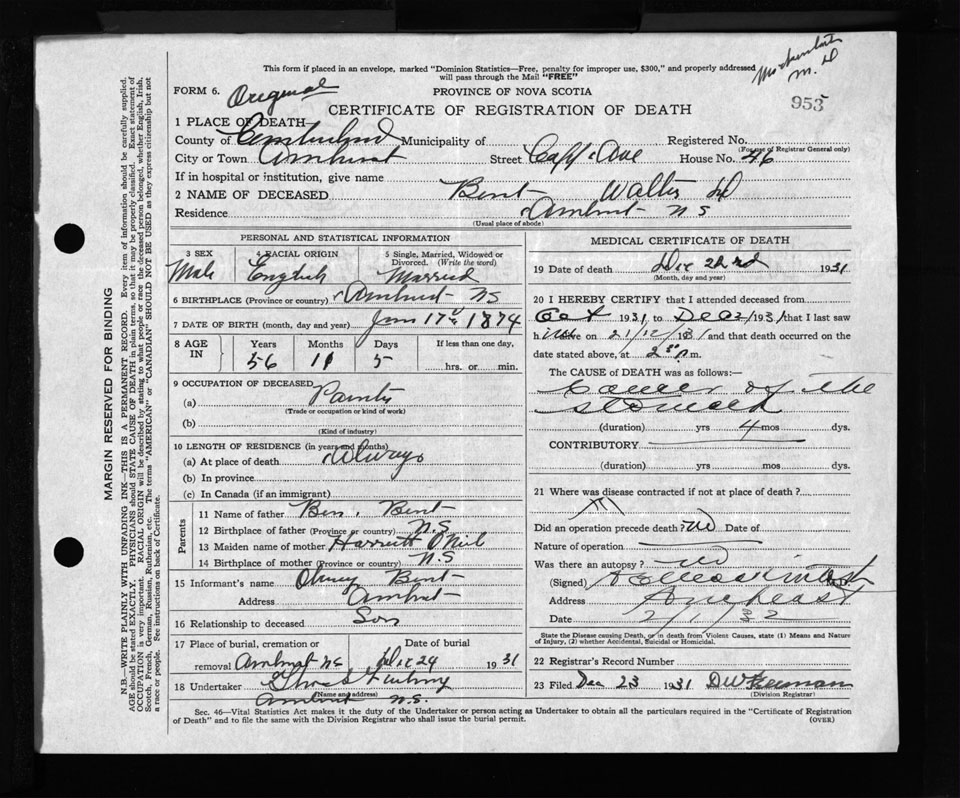 This form if placed in an envelope, marked "Dominion Statistics—Free, penalty for improper use, $300," and properly addressed
will pass through the Mail "FREE"
M. D
953
FORM 6. Original
PROVINCE OF NOVA SCOTIA
CERTIFICATE OF REGISTRATION OF DEATH
1 PLACE OF DEATH
County of Cumberland Municipality of Registered No.
(For use of Registrar General only)
City or Town Amherst Street Ave House No. 46
If in hospital or institution, give name
2 NAME OF DECEASED Bent Walter
Residence Amherst N S
(Usual place of abode)
PERSONAL AND STATISTICAL INFORMATION
3 SEX 4 RACIAL ORIGIN 5 Single, Married, Widowed or Divorced. (Write the word)
Male English Married
6 BIRTHPLACE (Province or country) Amherst NS
7 DATE OF BIRTH (month, day and year) Jan 17th 1874
8 AGE IN Years Months Days If less than one day,
56 11 5 hrs. or min.
9 OCCUPATION OF DECEASED
(a) Painter
(Trade or occupation or kind of work)
(b)
(Kind of industry)
10 LENGTH OF RESIDENCE (in years and months)
(a) At place of death Always
(b) In province
(c) In Canada (if an immigrant)
Parents
11 Name of father Ben. Bent
12 Birthplace of father (Province or country) N.S
13 Maiden name of mother Harriett O'Neil
14 Birthplace of mother (Province or country) N S
15 Informant's name Bent
Address Amherst
16 Relationship to deceased Son
17 Place of burial, cremation or removal Amherst NS Date of burial Dec 24 1931
18 Undertaker
(Name and address)
Amherst N.S.
MEDICAL CERTIFICATE OF DEATH
19 Date of death Dec 22nd 1931
(Month, day and year)
20 I HEREBY CERTIFY that I attended deceased from
Oct 1931 to Dec 1931 that I last saw
h alive on 21/12/1931 and that death occurred on
date stated above, at 2 p.m.
The CAUSE of DEATH was as follows:—
Cancer of the
stomach
(duration) yrs 4 mos dys.
CONTRIBUTORY
(duration) yrs mos dys.
21 Where was disease contracted if not at place of death?
Did an operation precede death? No Date of
Nature of operation
Was there an autopsy? No
(Signed)
Address Amherst
Date 2/1/32
State the Disease causing Death, or in death from Violent Causes, state (1) Means and Nature
of Injury, (2) whether Accidental, Suicidal or Homicidal.
22 Registrar's Record Number
23 Filed Dec 23 1931 DW Freeman
(Division Registrar)
Sec. 46—Vital Statistics Act makes it the duty of the Undertaker or person acting as Undertaker to obtain all the particulars required in the "Certificate of Registration
of Death" and to file the same with the Division Registrar who shall issue the burial permit. (OVER)
MARGIN RESERVED FOR BINDING
N.B.—WRITE PLAINLY WITH UNFADING INK—THIS IS A PERMANENT RECORD. Every item of information should be carefully supplied.
AGE should be stated EXACTLY. PHYSICIANS should STATE CAUSE OF DEATH in plain terms, so that it may be properly classified. Exact statement of
OCCUPATION is very important. RACIAL ORIGIN will be described by stating to what people or race the deceased person belonged, whether English, Irish,
Scotch, French, German, Russian, Ruthenian, etc. The terms "AMERICAN" or "CANADIAN" SHOULD NOT BE USED as they express citizenship but not
a race or people. See instructions on back of Certificate.